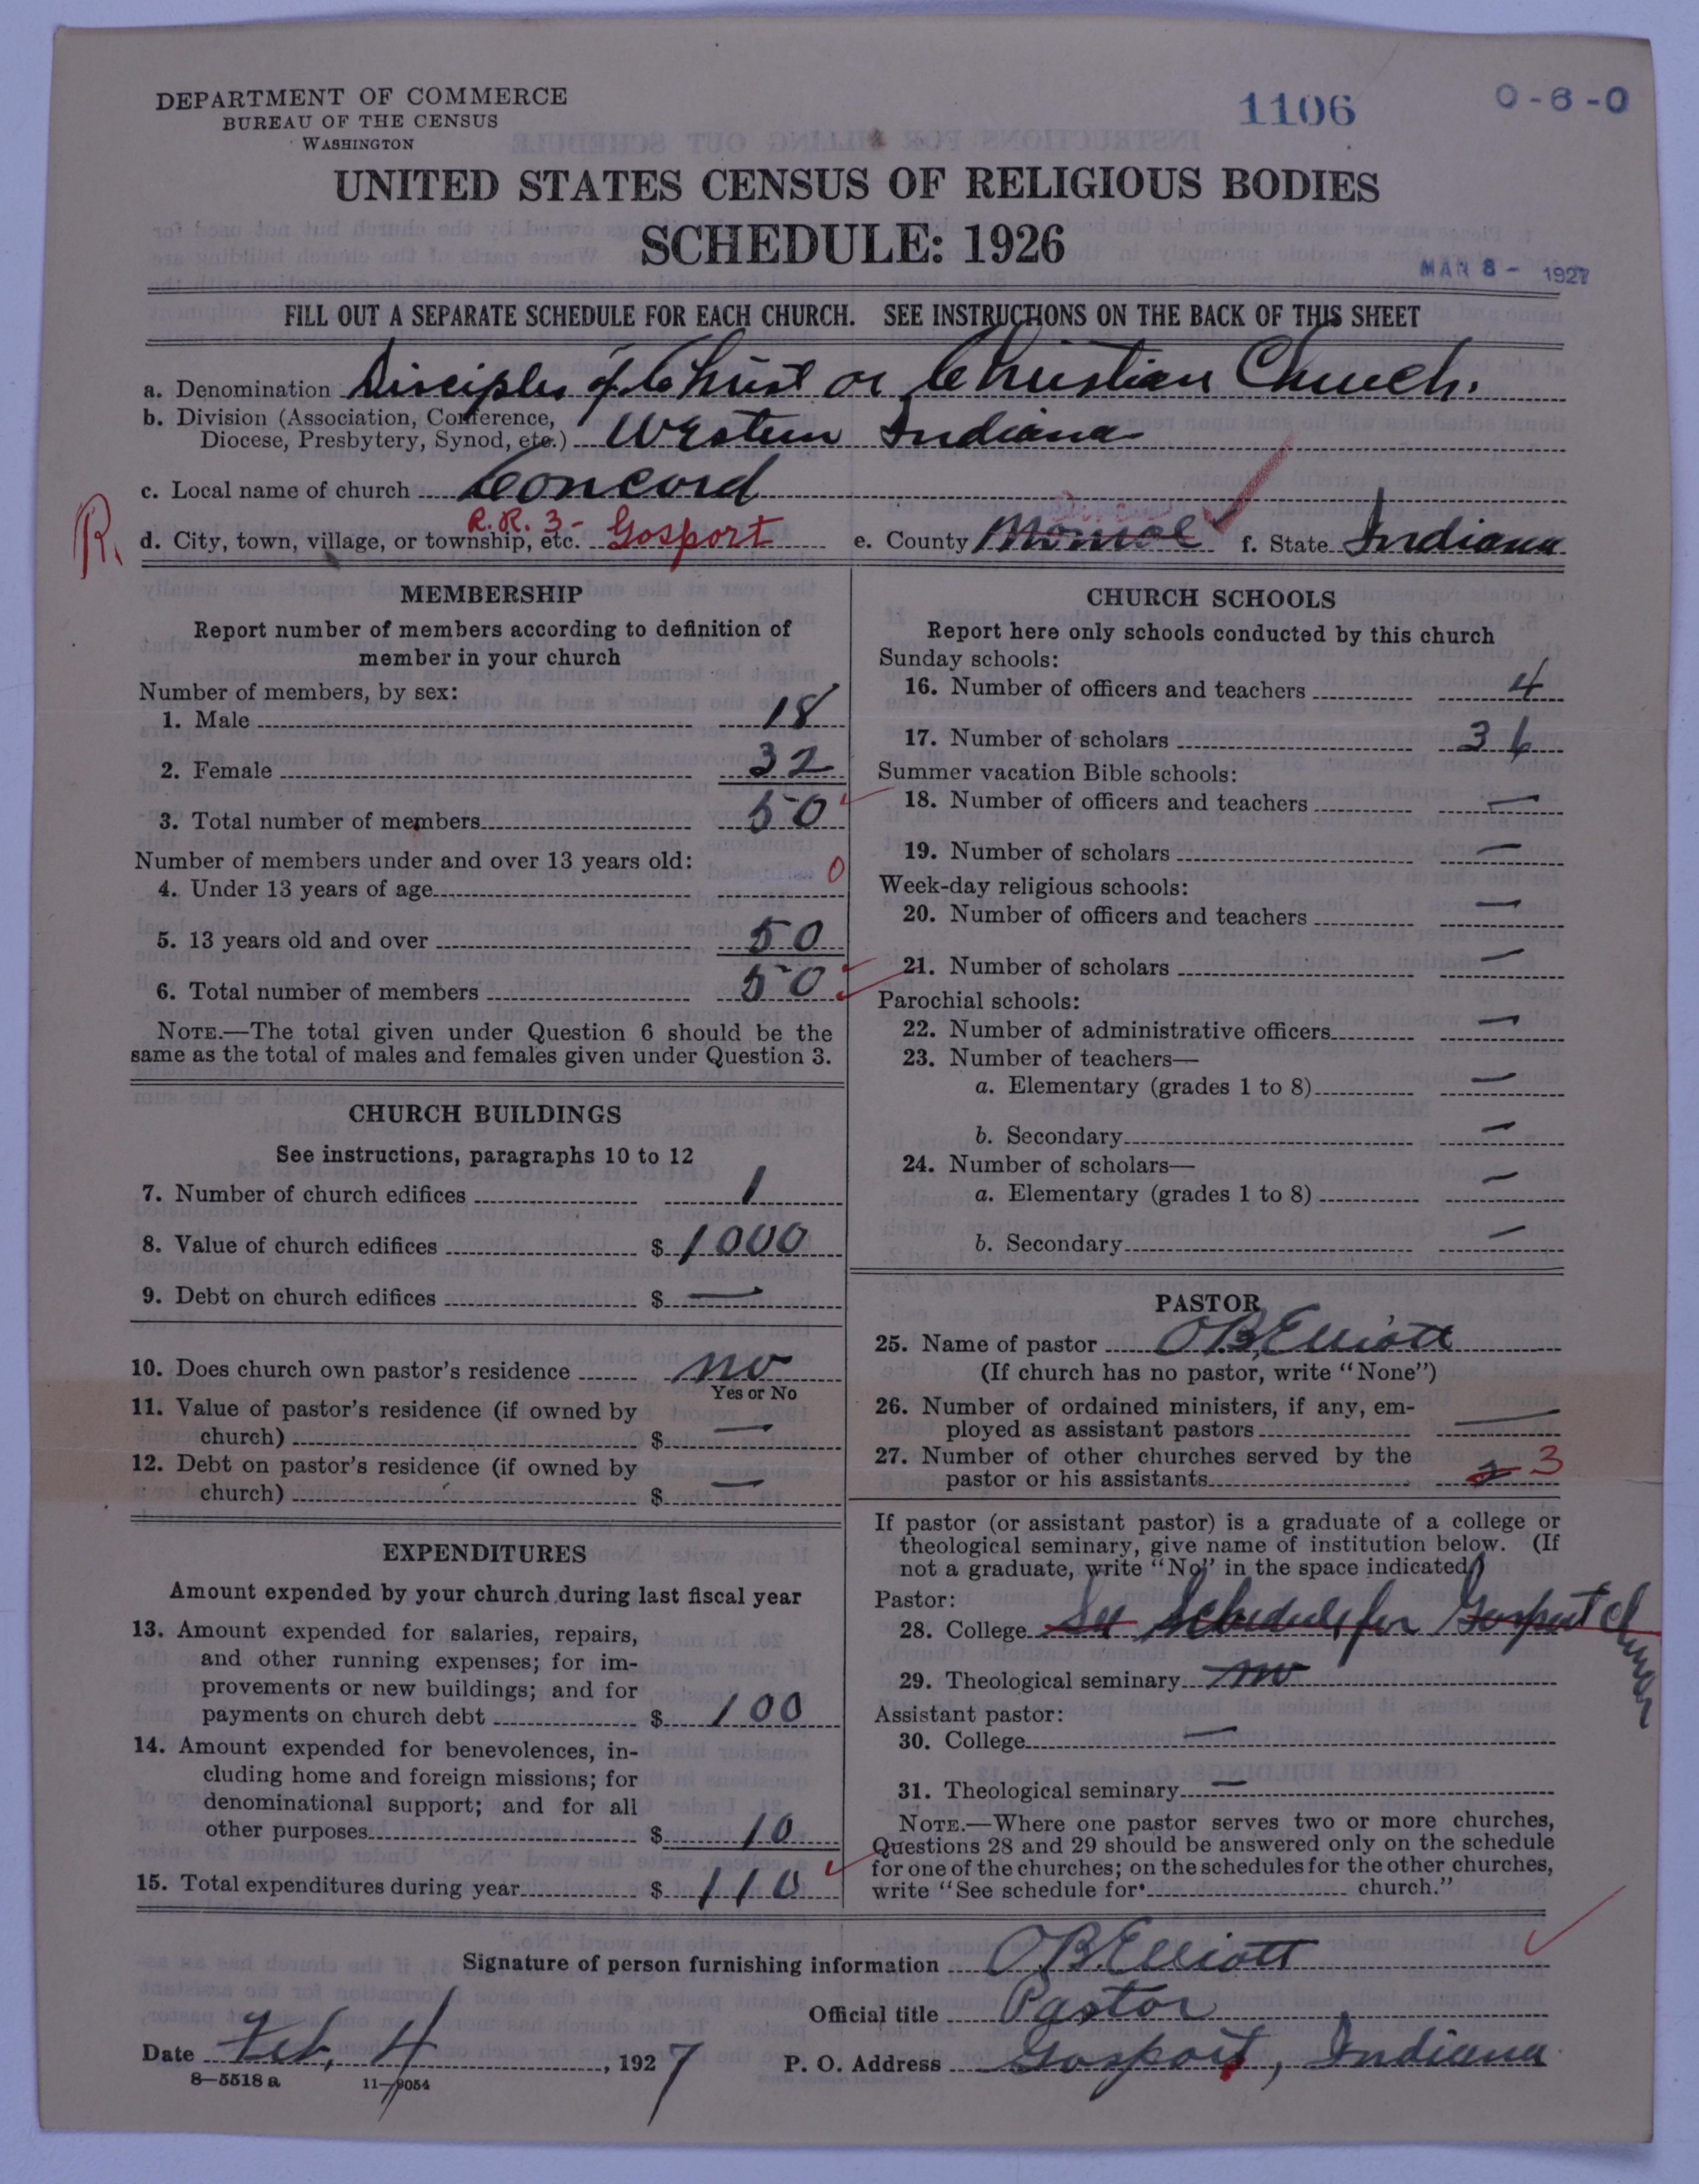 DEPARTMENT OF COMMERCE
BUREAU OF THE CENSUS
WASHINGTON
1106
0-6-0
UNITED STATES CENSUS OF RELIGIOUS BODIES
SCHEDULE: 1926
MAR 8 - 1927
FILL OUT A SEPARATE SCHEDULE FOR EACH CHURCH. SEE INSTRUCTIONS ON THE BACK OF THIS SHEET
a. Denomination Disciples of Christ or Christian Church.
b. Division (Association, Conference,
Diocese, Presbytery, Synod, etc.) Western Indiana
c. Local name of church Concord
R. R. 3 -
R. d. City, town, village, or township, etc. Gosport e. County Monroe f. State Indiana
MEMBERSHIP
Report number of members according to definition of
member in your church
Number of members, by sex:
1. Male 18
2. Female 32
3. Total number of members 50
Number of members under and over 13 years old:
4. Under 13 years of age 0
5. 13 years old and over 50
6. Total number of members 50
NOTE.—The total given under Question 6 should be the
same as the total of males and females given under Question 3.
CHURCH BUILDINGS
See instructions, paragraphs 10 to 12
7. Number of church edifices 1
8. Value of church edifices $ 1000
9. Debt on church edifices $ —
10. Does church own pastor's residence no
Yes or No
11. Value of pastor's residence (if owned by
church) $ —
12. Debt on pastor's residence (if owned by
church) $ —
EXPENDITURES
Amount expended by your church during last fiscal year
13. Amount expended for salaries, repairs,
and other running expenses; for im-
provements or new buildings; and for
payments on church debt $ 100
14. Amount expended for benevolences, in-
cluding home and foreign missions; for
denominational support; and for all
other purposes $ 10
15. Total expenditures during year $ 110
CHURCH SCHOOLS
Report here only schools conducted by this church
Sunday schools:
16. Number of officers and teachers 4
17. Number of scholars 36
Summer vacation Bible schools:
18. Number of officers and teachers —
19. Number of scholars —
Week-day religious schools:
20. Number of officers and teachers —
21. Number of scholars —
Parochial schools:
22. Number of administrative officers —
23. Number of teachers—
a. Elementary (grades 1 to 8) —
b. Secondary —
24. Number of scholars—
a. Elementary (grades 1 to 8) —
b. Secondary —
PASTOR
25. Name of pastor O. B. Elliott
(If church has no pastor, write "None")
26. Number of ordained ministers, if any, em-
ployed as assistant pastors —
27. Number of other churches served by the
pastor or his assistants 3
If pastor (or assistant pastor) is a graduate of a college or
theological seminary, give name of institution below. (If
not a graduate, write "No" in the space indicated.)
Pastor:
28. College See Schedule for Gosport Church
29. Theological seminary no
Assistant pastor:
30. College —
31. Theological seminary —
NOTE.—Where one pastor serves two or more churches,
Questions 28 and 29 should be answered only on the schedule
for one of the churches; on the schedules for the other churches,
write "See schedule for church."
Signature of person furnishing information O. B. Elliott
Official title Pastor
Date Feb. 4, 1927 P. O. Address Gosport, Indiana
8—5518 a 11—9054